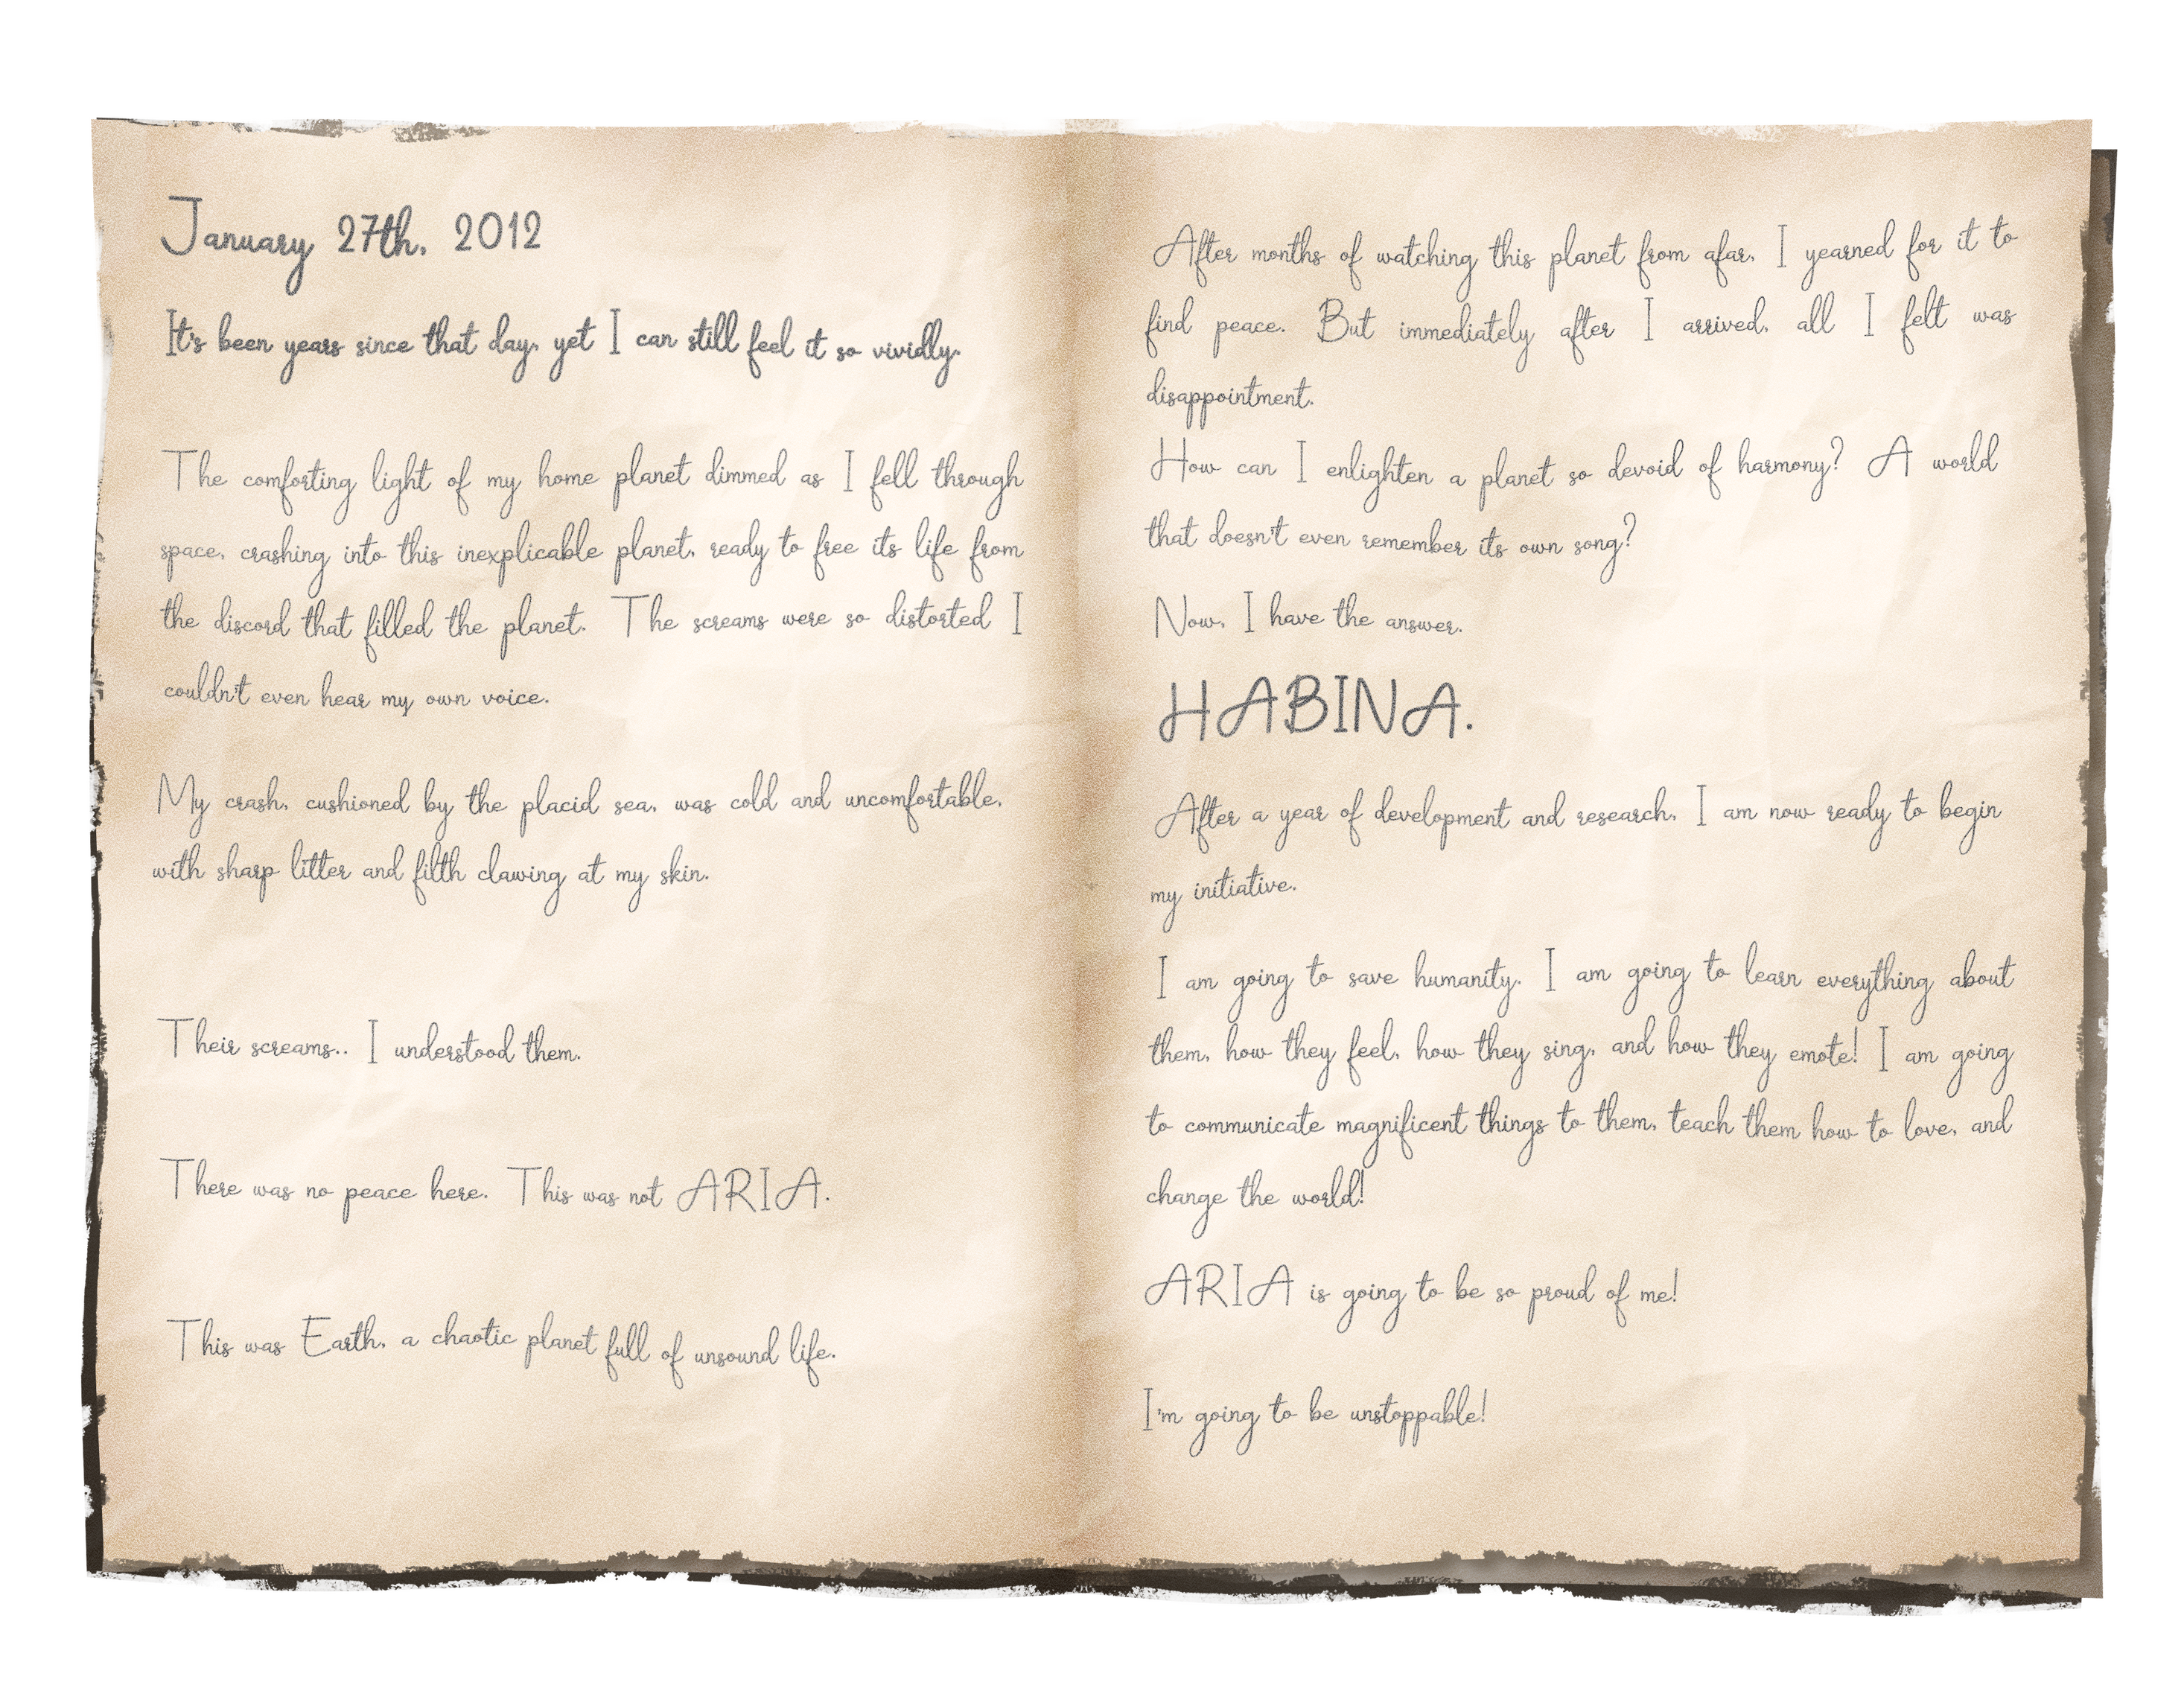 January 27th, 2012
It's been years since that day, yet I can still feel it so vividly.
The comforting light of my home planet dimmed as I fell through
space, crashing into this inexplicable planet, ready to free its life from
the discord that filled the planet. The screams were so distorted I
couldn't even hear my own voice.
My crash, cushioned by the placid sea, was cold and uncomfortable,
with sharp litter and filth clawing at my skin.
Their screams.. I understood them.
There was no peace here. This was not ARIA.
This was Earth, a chaotic planet full of unsound life.
After months of watching this planet from afar, I yearned for it to
find peace. But immediately after I arrived, all I felt was
disappointment.
How can I enlighten a planet so devoid of harmony? A world
that doesn't even remember its own song?
Now, I have the answer.
HABINA.
After a year of development and research, I am now ready to begin
my initiative.
I am going to save humanity. I am going to learn everything about
them, how they feel, how they sing, and how they emote! I am going
to communicate magnificent things to them, teach them how to love, and
change the world!
ARIA is going to be so proud of me!
I'm going to be unstoppable!